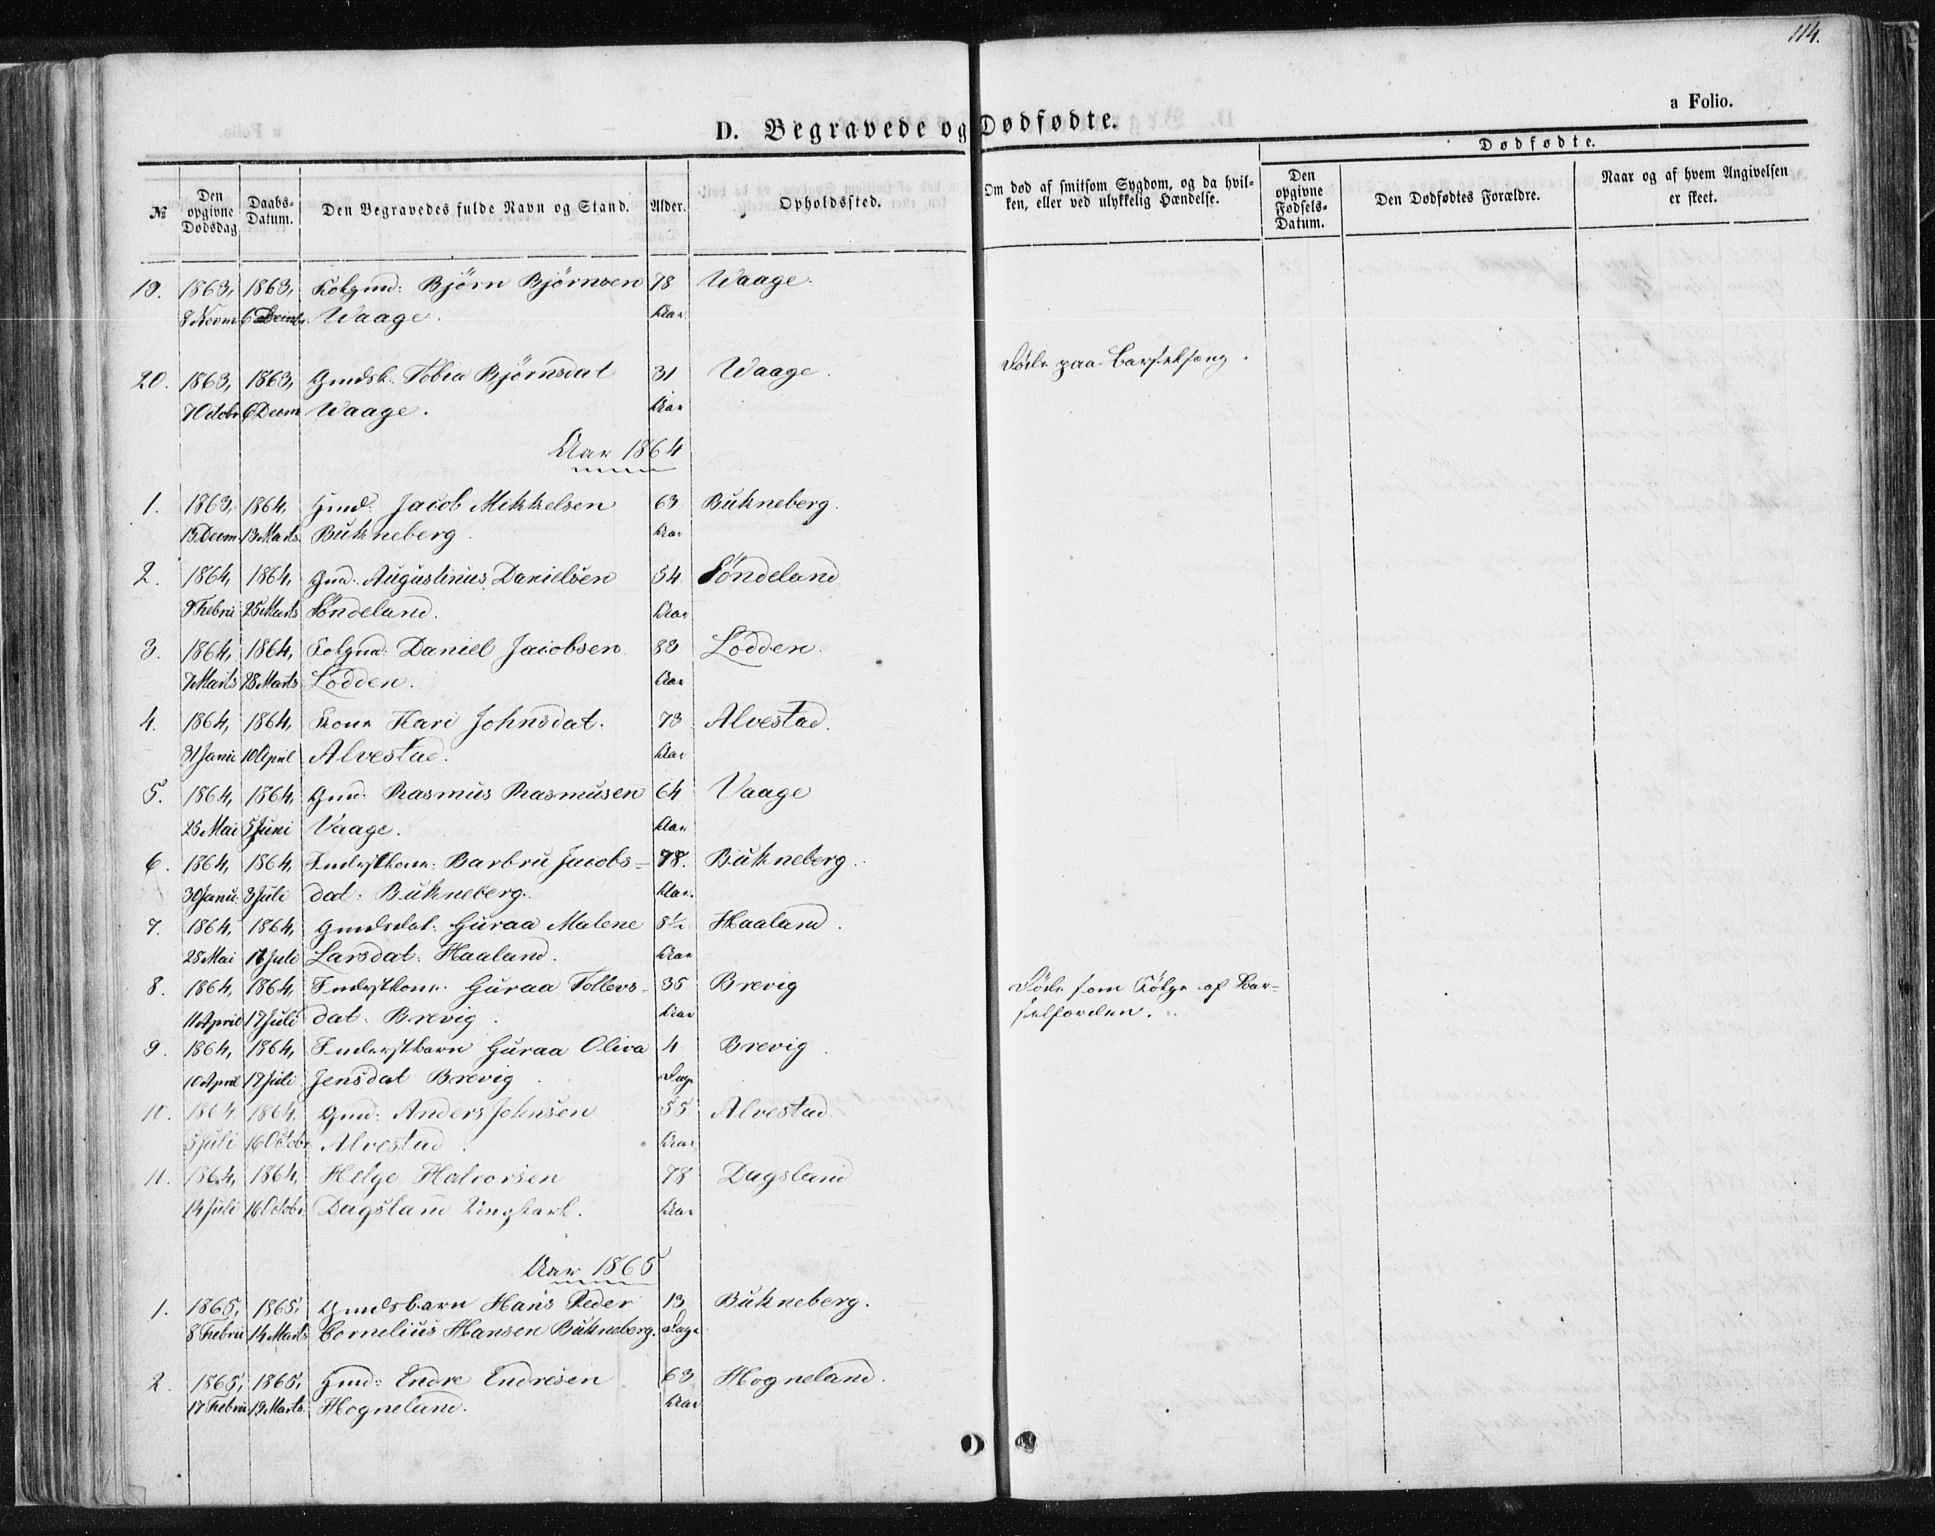 114.
a Folio.
D. Begravede og Dødfødte.
№ | Den opgivne Dødsdag | Daabs-Datum. | Den Begravedes fulde Navn og Stand. | Alder. | Opholdssted. | Om død af smitsom Sygdom, og da hvilken, eller ved ulykkelig Hændelse. | Dødfødte. | Den opgivne Fødsels-Datum. | Den Dødfødtes Forældre. | Naar og af hvem Angivelsen er skeet.
19. 1863, 1863, Folgmd: Bjørn Bjørnsen 78 Waage.
8 Novm 6 Decmbr. Waage. Aar
20. 1863, 1863, Gmdsk. Tobia Bjørnsdat 31 Waage. Døde paa Barselseng.
7 Octobr 6 Decm Waage. Aar
Aar 1864
1. 1863, 1864, Hmd. Jacob Mikkelsen 63 Bukneberg.
13 Decm. 13 Marts. Bukneberg. Aar
2. 1864, 1864, Gmd. Augustinus Danielsen 54 Søndeland
9 Febru 25 Marts Søndeland. Aar
3. 1864, 1864, Folgmd: Daniel Jacobsen 83 Lodden.
7 Marts 28 Marts Lodden. Aar
4. 1864, 1864, Kone Kari Johnsdat. 73 Alvestad.
31 Janu 10 April Alvestad. Aar
5. 1864, 1864, Gmd. Rasmus Rasmusen 64 Vaage
25 Mai 5 Juni Vaage. Aar
6. 1864, 1864, Inderstkone: Barbru Jacobs- 78. Bukneberg.
30 Janu. 3 Juli dat: Bukneberg. Aar.
7. 1864, 1864, Gmdsdat: Guraa Malene 8½ Haaland.
28 Mai 17 Juli Larsdat: Haaland. Aar
8. 1864, 1864, Inderstkone. Guraa Tollevs- 35 Brevig Døde som Følge af Bar-
11 April 17 Juli dat: Brevig. Aar selfærden.
9. 1864, 1864, Inderstbarn Guraa Oliva 4 Brevig.
10 April 17 Juli Jensdat Brevig. Dage
10. 1864. 1864, Gmd: Anders Johnsen 55 Alvestad
5 Juli 16 Octobr Alvestad. Aar
11. 1864, 1864, Helge Halvorsen 78 Dagsland
14 Juli 16 Octobr. Dagsland Aar
Aar 1865
1. 1865, 1865, Gmdsbarn Hans Peder 13 Bukneberg.
8 Febru 14 Marts Cornelius Hansen Bukneberg. Dage
2. 1865, 1865, Hmd: Endre Endresen 63 Hogneland.
17 Febru 19 Marts Hogneland. Aar